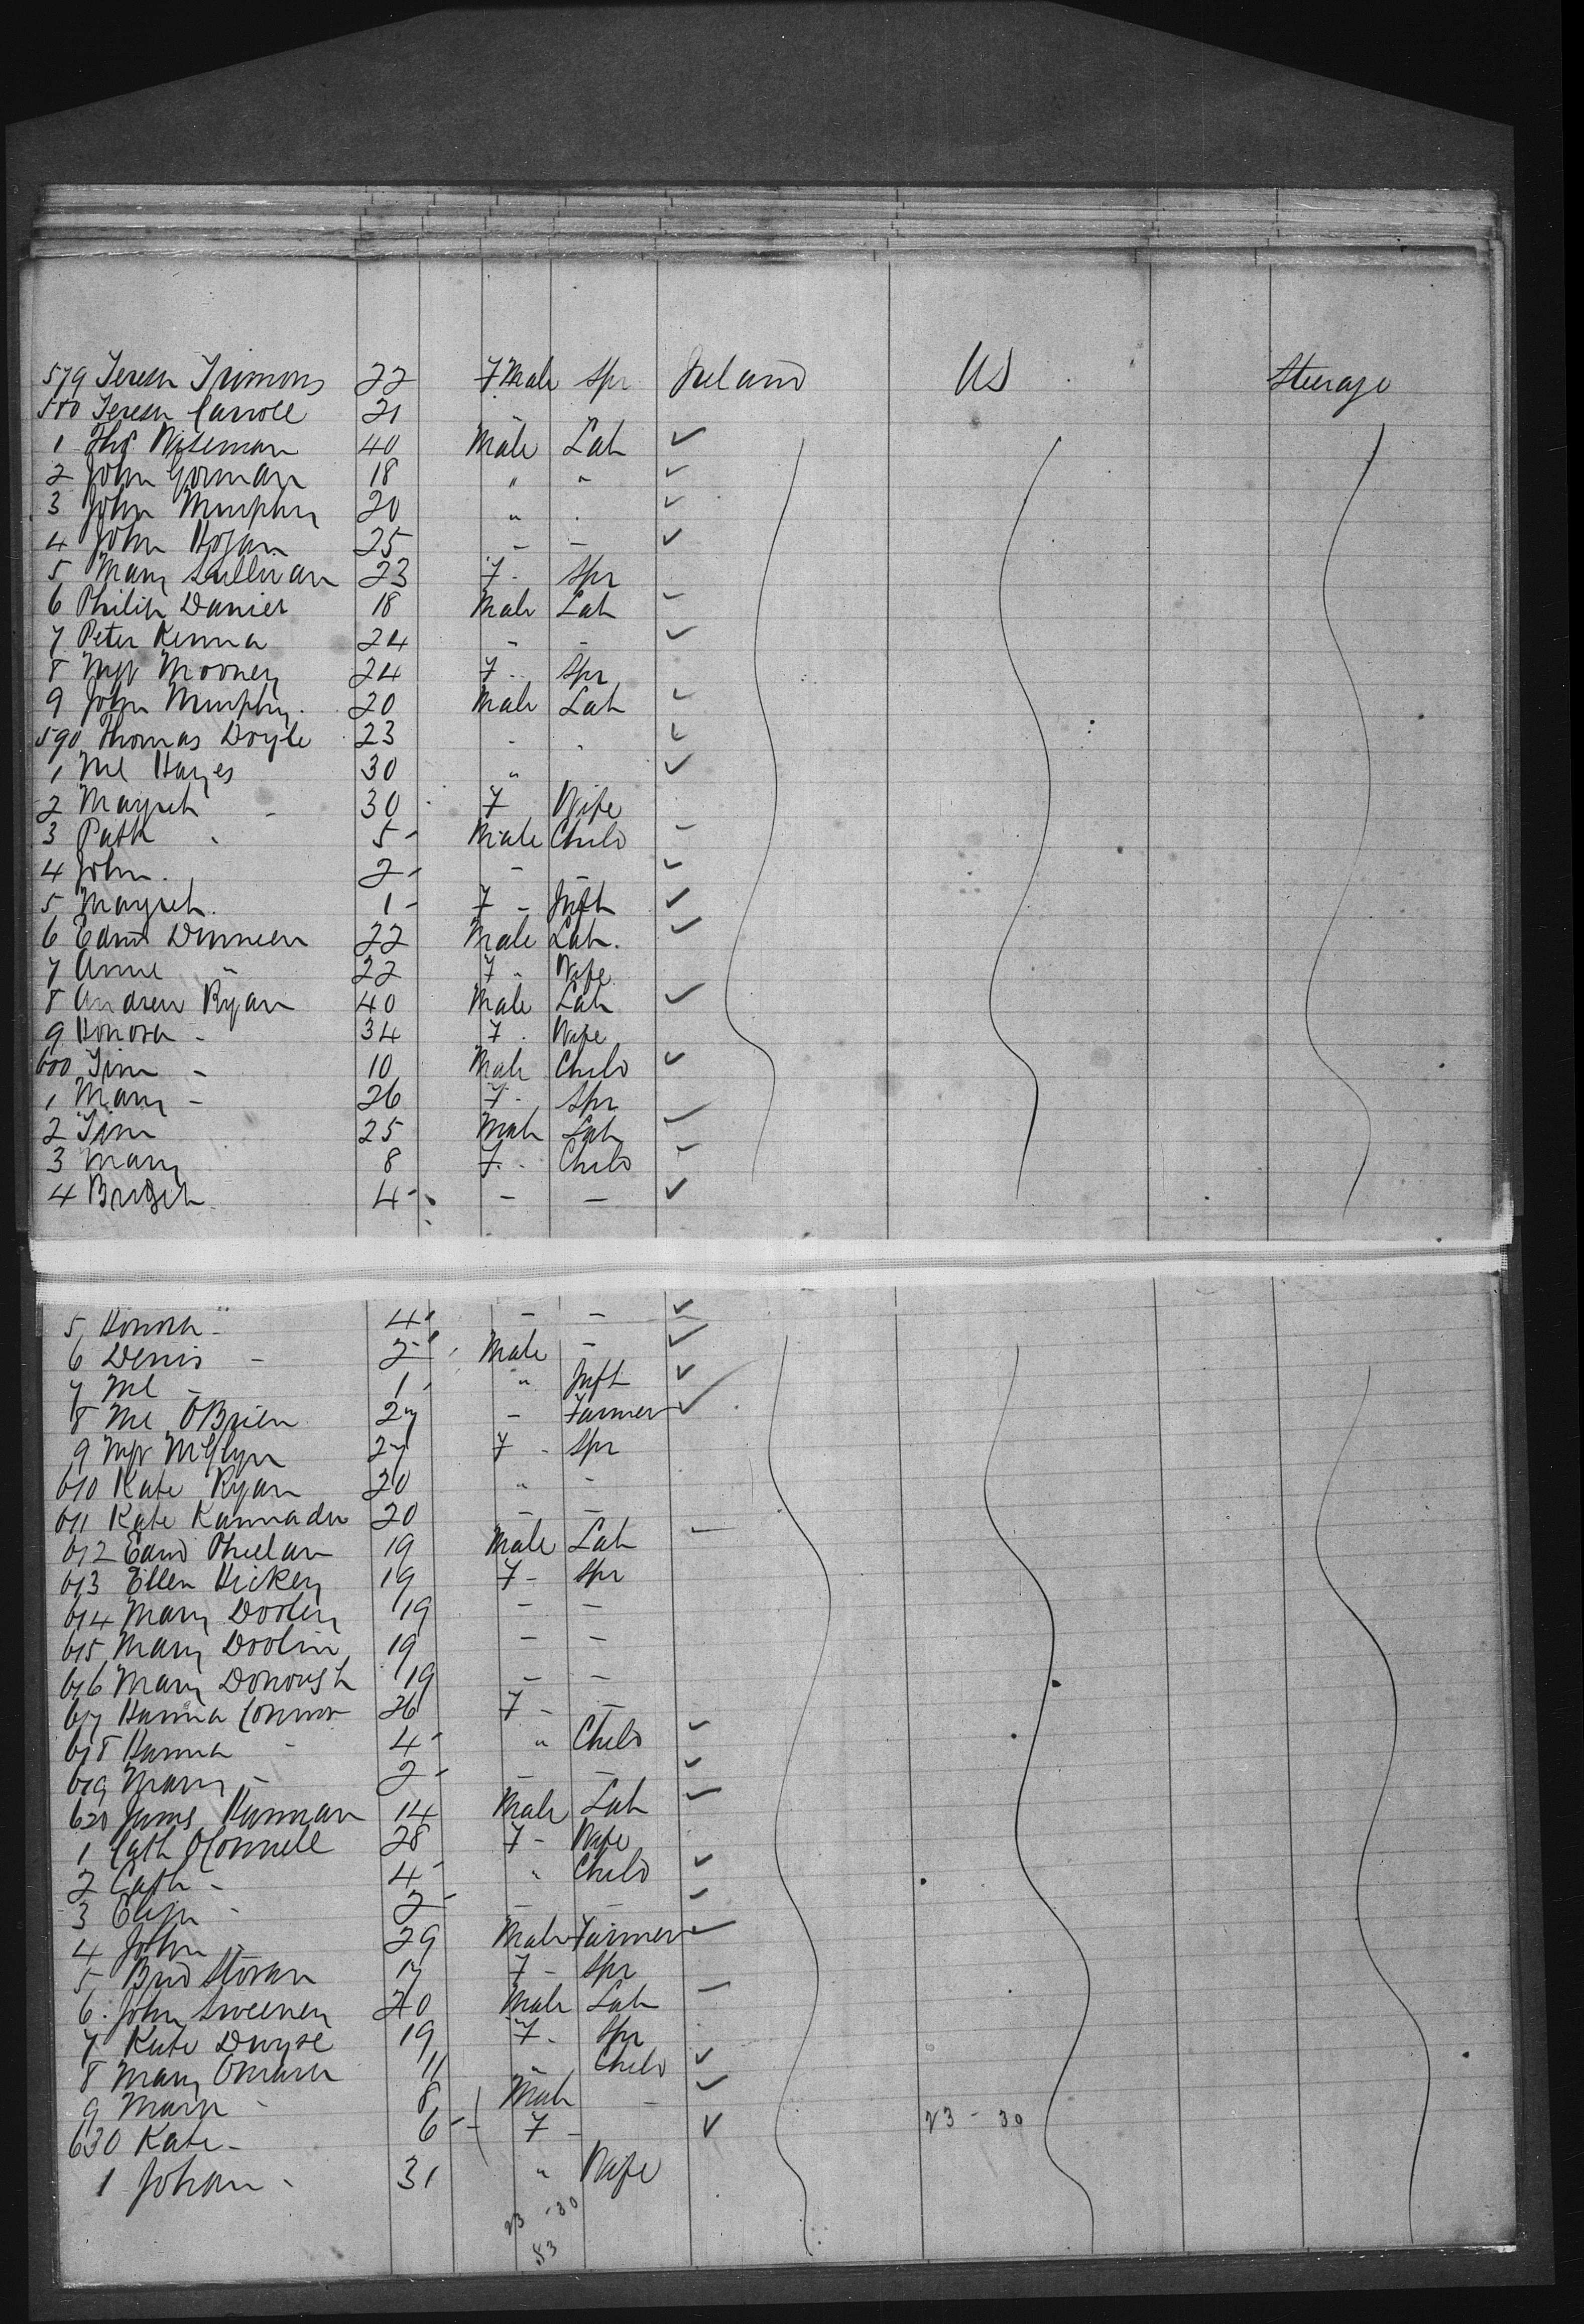 579 Teresa Timmons 22 FMale Spr Ireland US Steerage
580 Teresa Carroll 21
1 Thos Wiseman 40 Male Lab ✓
2 John Gorman 18 " " ✓
3 John Murphy 20 " " ✓
4 John Hogan 25 - - ✓
5 Mary Sullivan 23 F - Spr
6 Philip Daniel 18 Male Lab -
7 Peter Kenna 24 - - ✓
8 Mgt Mooney 24 F " Spr
9 John Murphy 20 Male Lab ✓
590 Thomas Doyle 23 " " ✓
1 Ml Hayes 30 " ✓
2 Margret - 30 F Wife
3 Patk " 5 - Male Child -
4 John " 2 - - - ✓
5 Margret 1 - F - Inft ✓
6 Edmd Dinneen 22 Male Lab ✓
7 Anne " 22 F " Wife
8 Andrew Ryan 40 Male Lab ✓
9 Honora - 34 F " Wife
600 Tim - 10 Male Child ✓
1 Mary - 26 F - Spr
2 Tim 25 Male Lab ✓
3 Mary 8 F " Child -
4 Bridget 4 - - - ✓
5 Honora - 4 - - ✓
6 Denis - 2 Male - ✓
7 Ml - 1 " Inft ✓
8 Ml OBrien 27 - Farmer ✓
9 Mgt McGlyn 27 F - Spr
610 Kate Ryan 20 " -
611 Kate 20 - -
612 Edmd Phelan 19 Male Lab -
613 Ellen Hickey 19 F - Spr
614 Mary Dooley 19 - -
615 Mary Doolin 19 - -
616 Mary Donough 19 - -
617 Hanna Connor 26 F - -
618 Hanna - 4 - " Child ✓
619 Mary - 2 - - - ✓
620 James 14 Male Lab ✓
1 Cath OConnell 28 F - Wife
2 Cath - 4 - " Child ✓
3 Eliza - 2 - - - ✓
4 John - 29 Male Farmer ✓
5 Brid 17 F - Spr
6 John Sweeney 20 Male Lab -
7 Kate Dwyre 19 F - Spr
8 Mary Omara 11 " Child ✓
9 Mark - 8 Male - ✓
630 Kate - 6 - F - ✓ 23 - 30
1 Johan - 31 " Wife
23 - 30
53